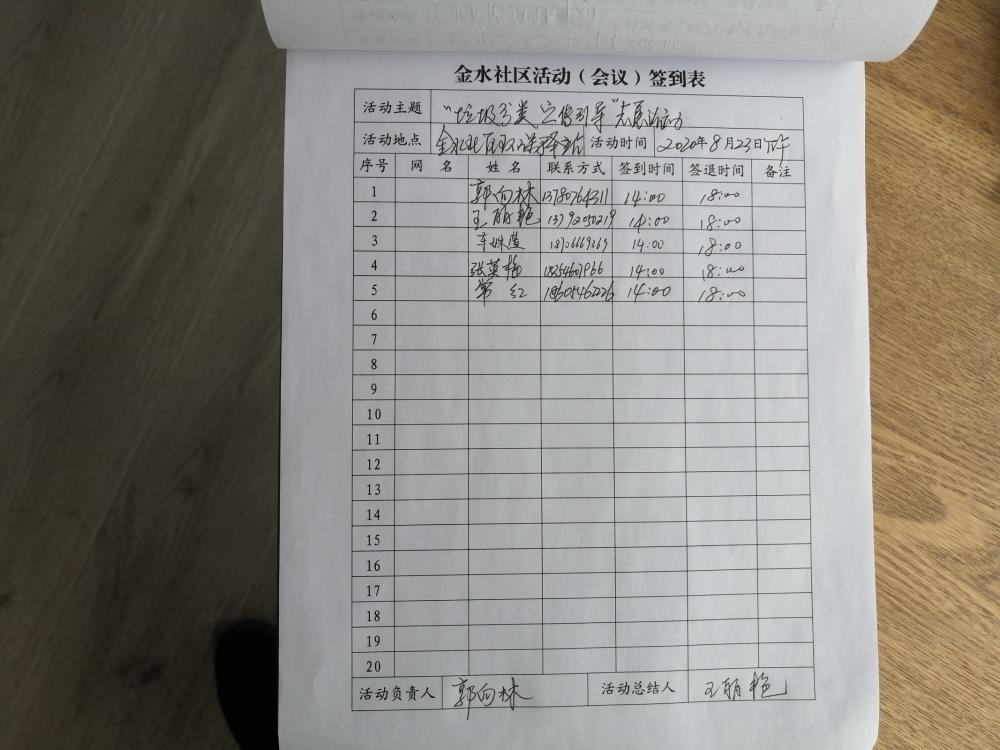 金水社区活动（会议）签到表
活动主题 “垃圾分类宣传引导”志愿活动
活动地点 金水社区 活动时间 2020年8月23日下午
序号 网 名 姓 名 联系方式 签到时间 签退时间 备注
1 郭向林 13780764311 14:00 18:00
2 王丽艳 13792050219 14:00 18:00
3 14:00 18:00
4 张英梅 14:00 18:00
5 常红 18605462226 14:00 18:00
6
7
8
9
10
11
12
13
14
15
16
17
18
19
20
活动负责人 郭向林 活动总结人 王丽艳